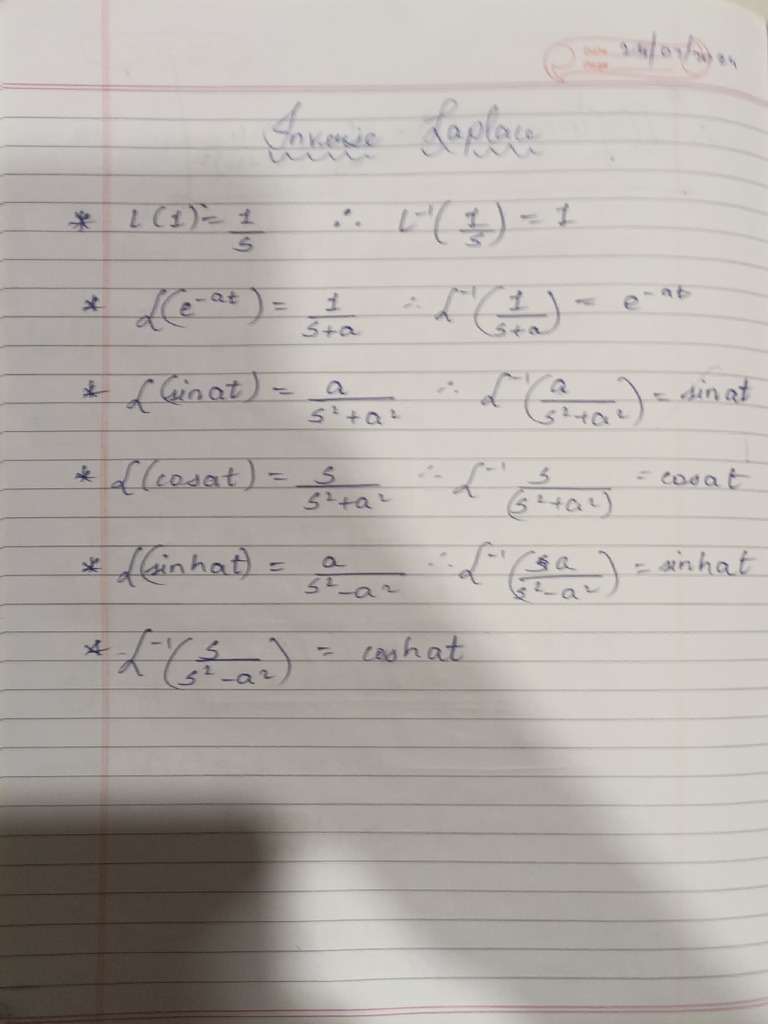 Inverse Laplace
* L(1) = 1/s ∴ L⁻¹(1/s) = 1
* L(e⁻ᵃᵗ) = 1/(s+a) ∴ L⁻¹(1/(s+a)) = e⁻ᵃᵗ
* L(sinat) = a/(s²+a²) ∴ L⁻¹(a/(s²+a²)) = sinat
* L(cosat) = s/(s²+a²) ∴ L⁻¹ s/(s²+a²) = cosat
* L(sinhat) = a/(s²-a²) ∴ L⁻¹(a/(s²-a²)) = sinhat
* L⁻¹(s/(s²-a²)) = coshat